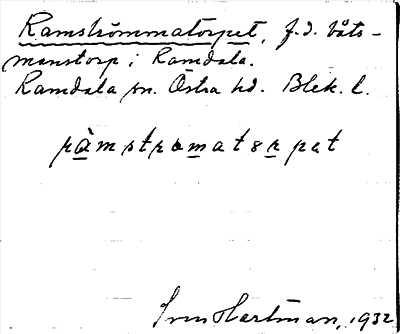 Ramströmmatorpet, f.d. båts-
manstorp i Ramdala.
Ramdala sn. Östra hd. Blek. l.
ràmstromatørpat
Sven Hartman, 1932